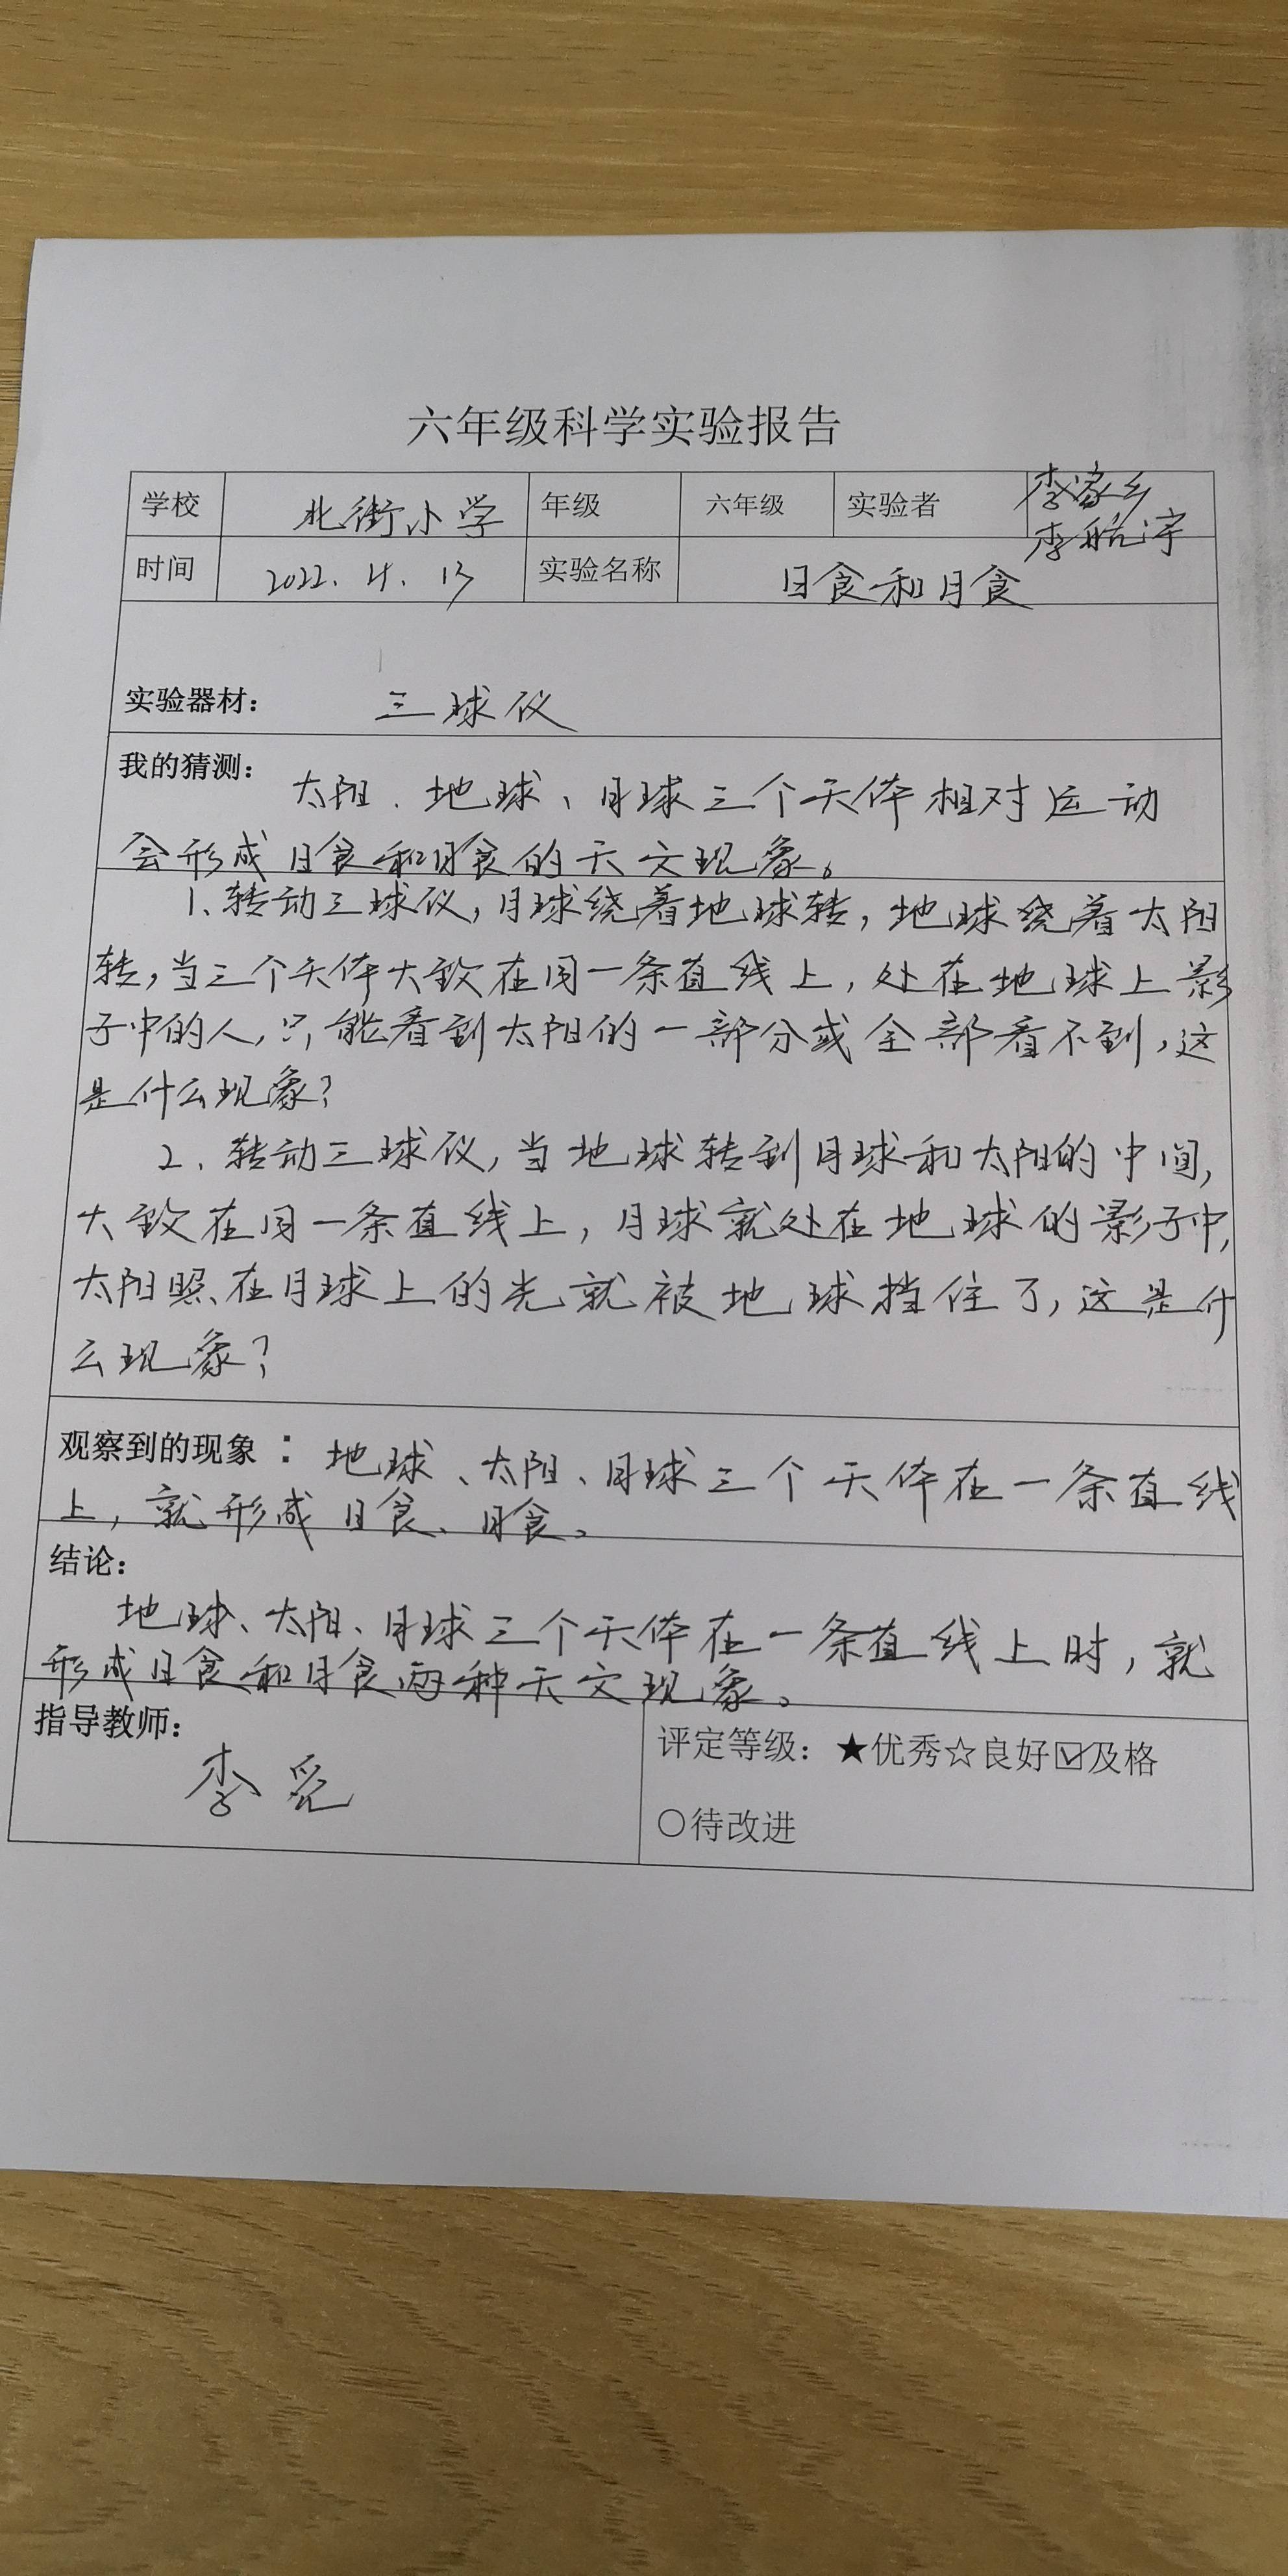 六年级科学实验报告
学校 北街小学 年级 六年级 实验者 李家乡
李航宇
时间 2022.4.13 实验名称 日食和月食
实验器材： 三球仪
我的猜测： 太阳、地球、月球三个天体相对运动
会形成日食和月食的天文现象。
1、转动三球仪，月球绕着地球转，地球绕着太阳
转，当三个天体大致在同一条直线上，处在地球上影
子中的人，只能看到太阳的一部分或全部看不到，这
是什么现象？
2、转动三球仪，当地球转到月球和太阳的中间，
大致在同一条直线上，月球就处在地球的影子中，
太阳照在月球上的光就被地球挡住了，这是什
么现象？
观察到的现象： 地球、太阳、月球三个天体在一条直线
上，就形成日食、月食。
结论：
地球、太阳、月球三个天体在一条直线上时，就
形成日食和月食两种天文现象。
指导教师：
李
评定等级：★优秀☆良好☑及格
○待改进